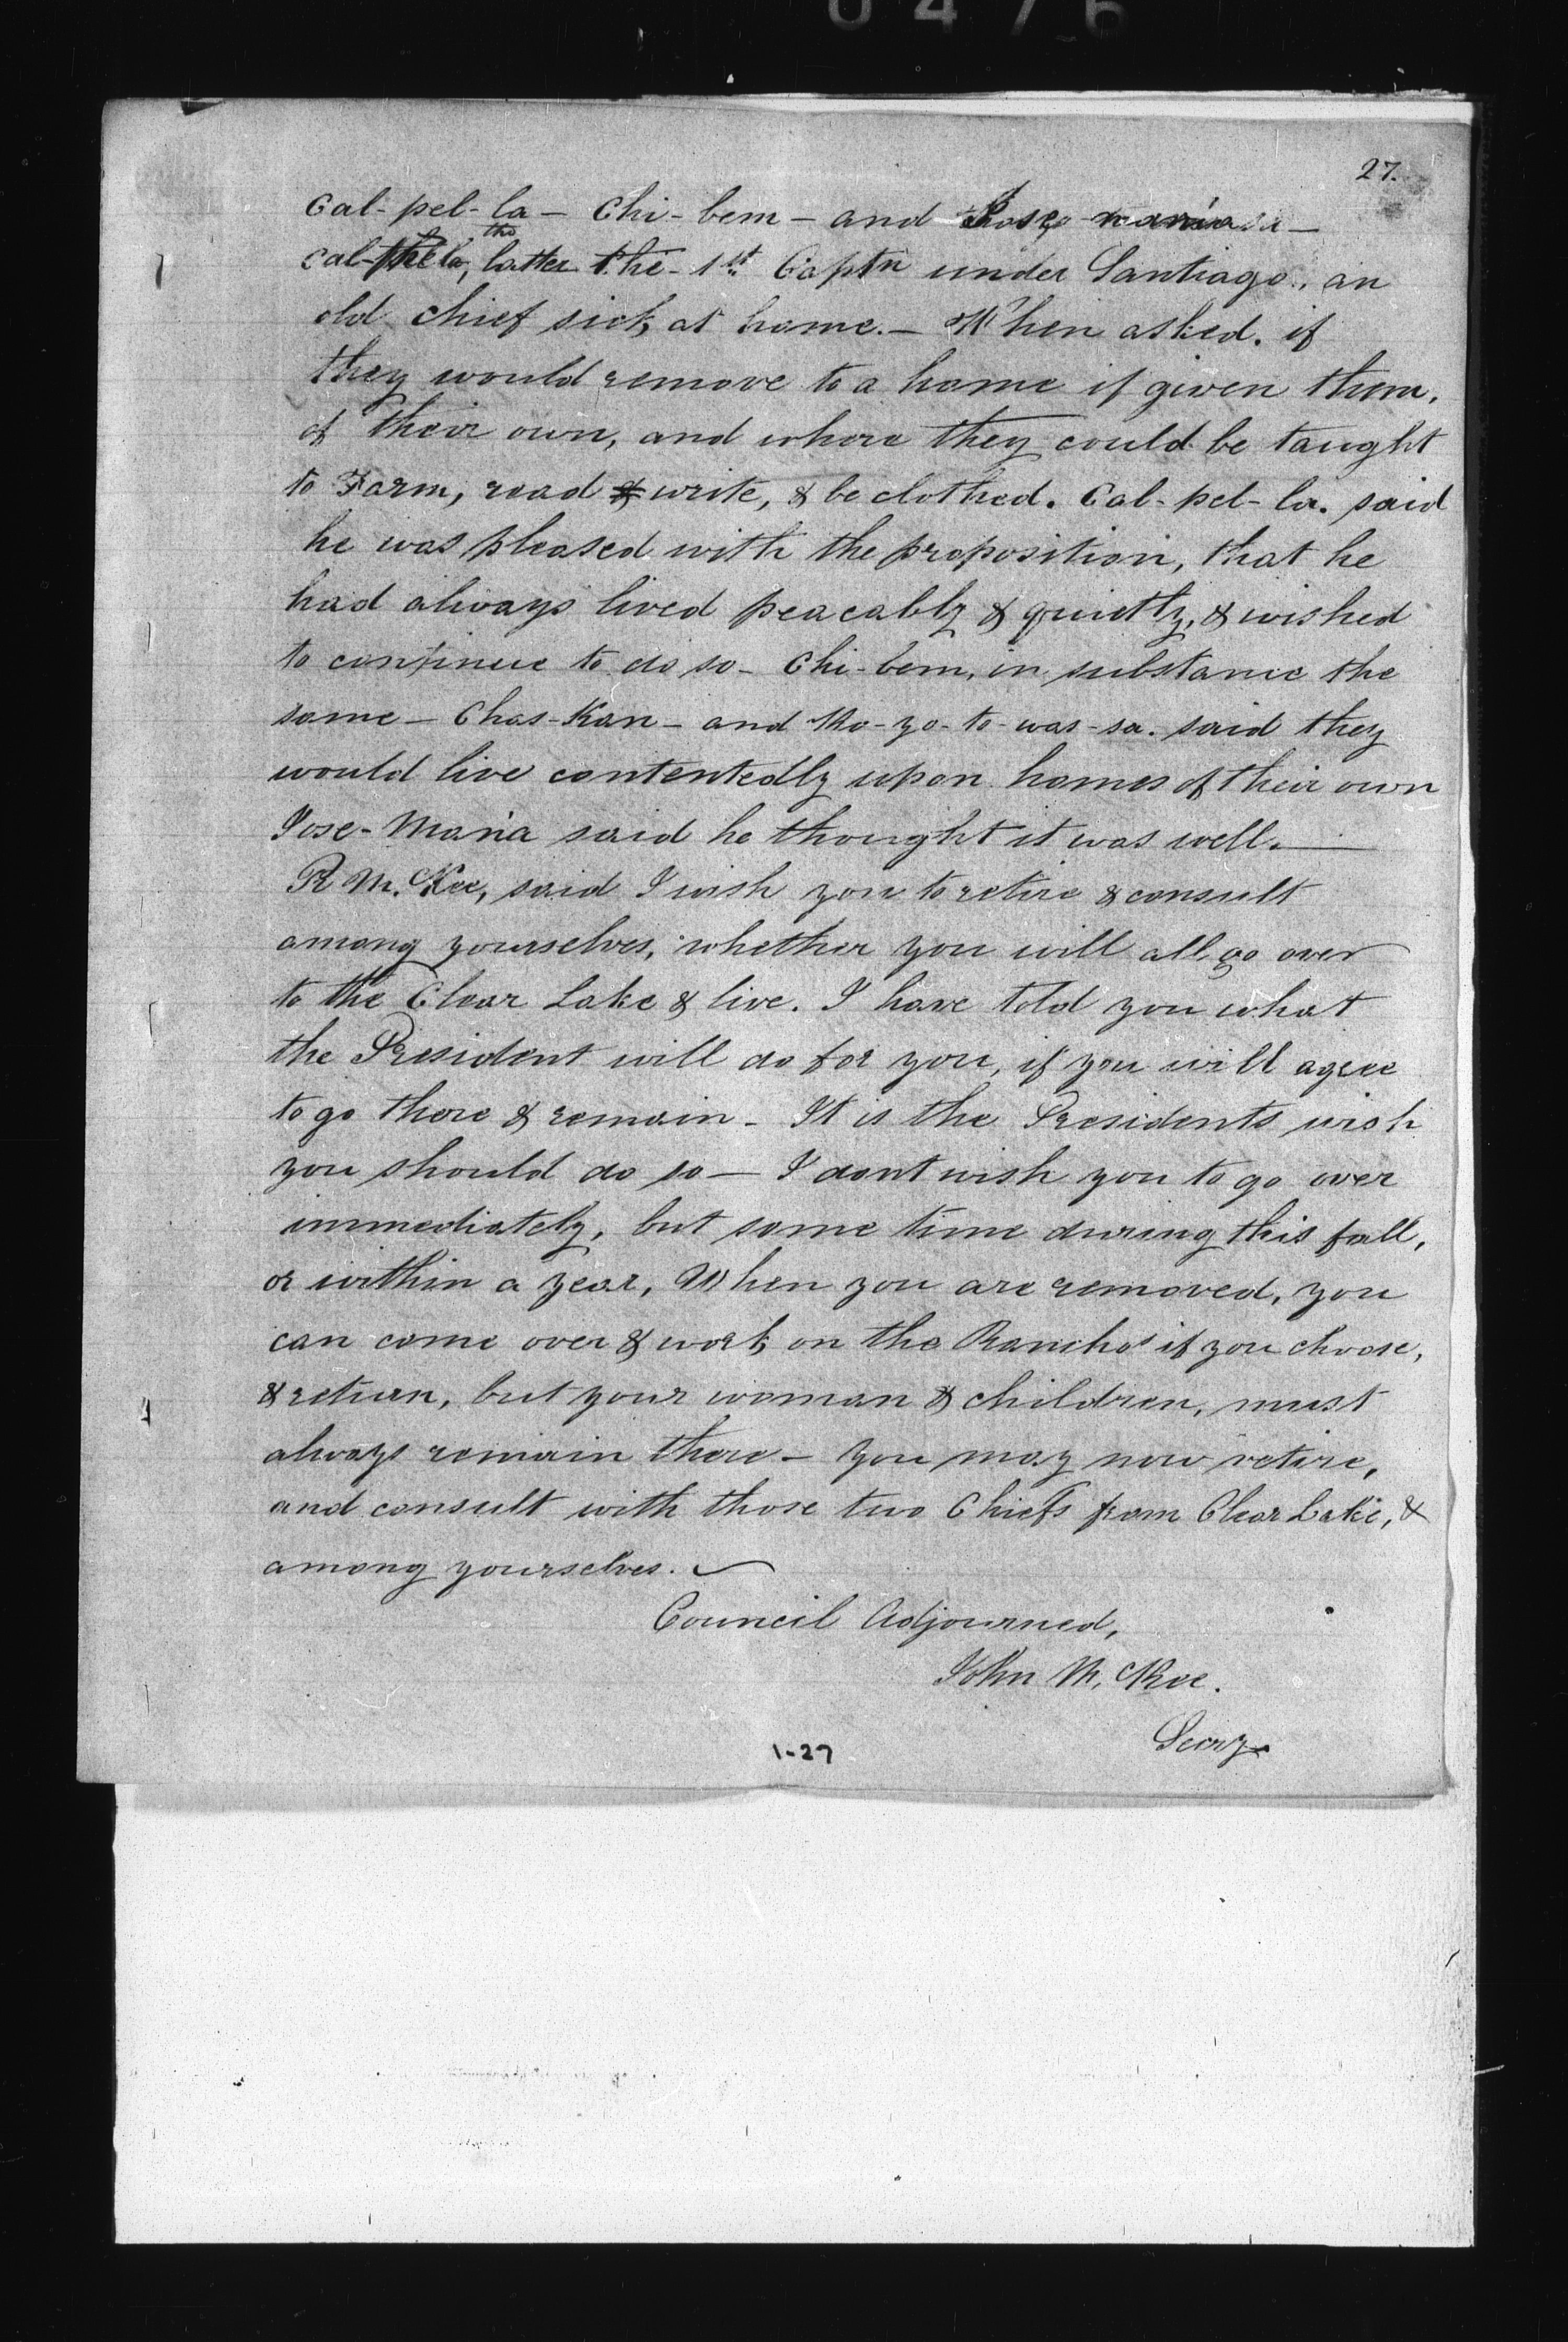 0476
27.
Cal-pel-la — Chi-bem — and Jose maria —
Cal-pel-la, the latter the 1st Captn under Santiago., an
old chief sick, at home. — When asked. if
they would remove to a home if given them,
of their own, and where they could be taught
to Farm, read & write, & be clothed. Cal-pel-la. said
he was pleased with the proposition, that he
had always lived peacably & quietly, & wished
to continue to do so — Chi-bem, in substance the
same — Chas-Kan — and Ko-yo-to-was-sa. said they
would live contentedly upon homes of their own
Jose-Maria said he thought it was well. —
R McKee, said I wish you to retire & consult
among yourselves, whether you will all go over
to the Clear Lake & live. I have told you what
the President will do for you, if you will agree
to go there & remain — It is the Presidents wish
you should do so — I dont wish you to go over
immediately, but some time during this fall,
or within a year, When you are removed, you
can come over & work on the Ranchos if you choose,
& return, but your woman & children, must
always remain there — you may now retire,
and consult with those two Chiefs from Clear Lake, &
among yourselves. —
Council Adjourned,
John McKee.
Secry
1-27